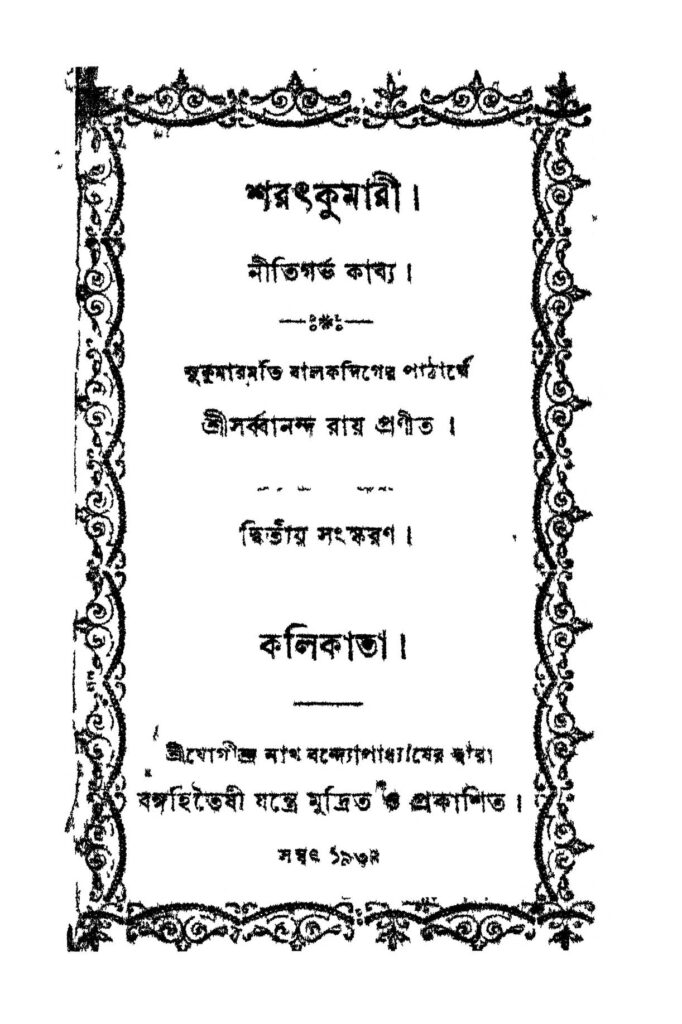 শরৎকুমারী।
নীতিগর্ভ কাব্য।
সুকুমারমতি বালকদিগের পাঠার্থে
শ্রীসর্ব্বানন্দ রায় প্রণীত।
দ্বিতীয় সংস্করণ।
কলিকাতা।
শ্রীযোগীন্দ্র নাথ বন্দ্যোপাধ্যায়ের দ্বারা
বঙ্গহিতৈষী যন্ত্রে মুদ্রিত ও প্রকাশিত।
সম্বৎ ১৯৩২